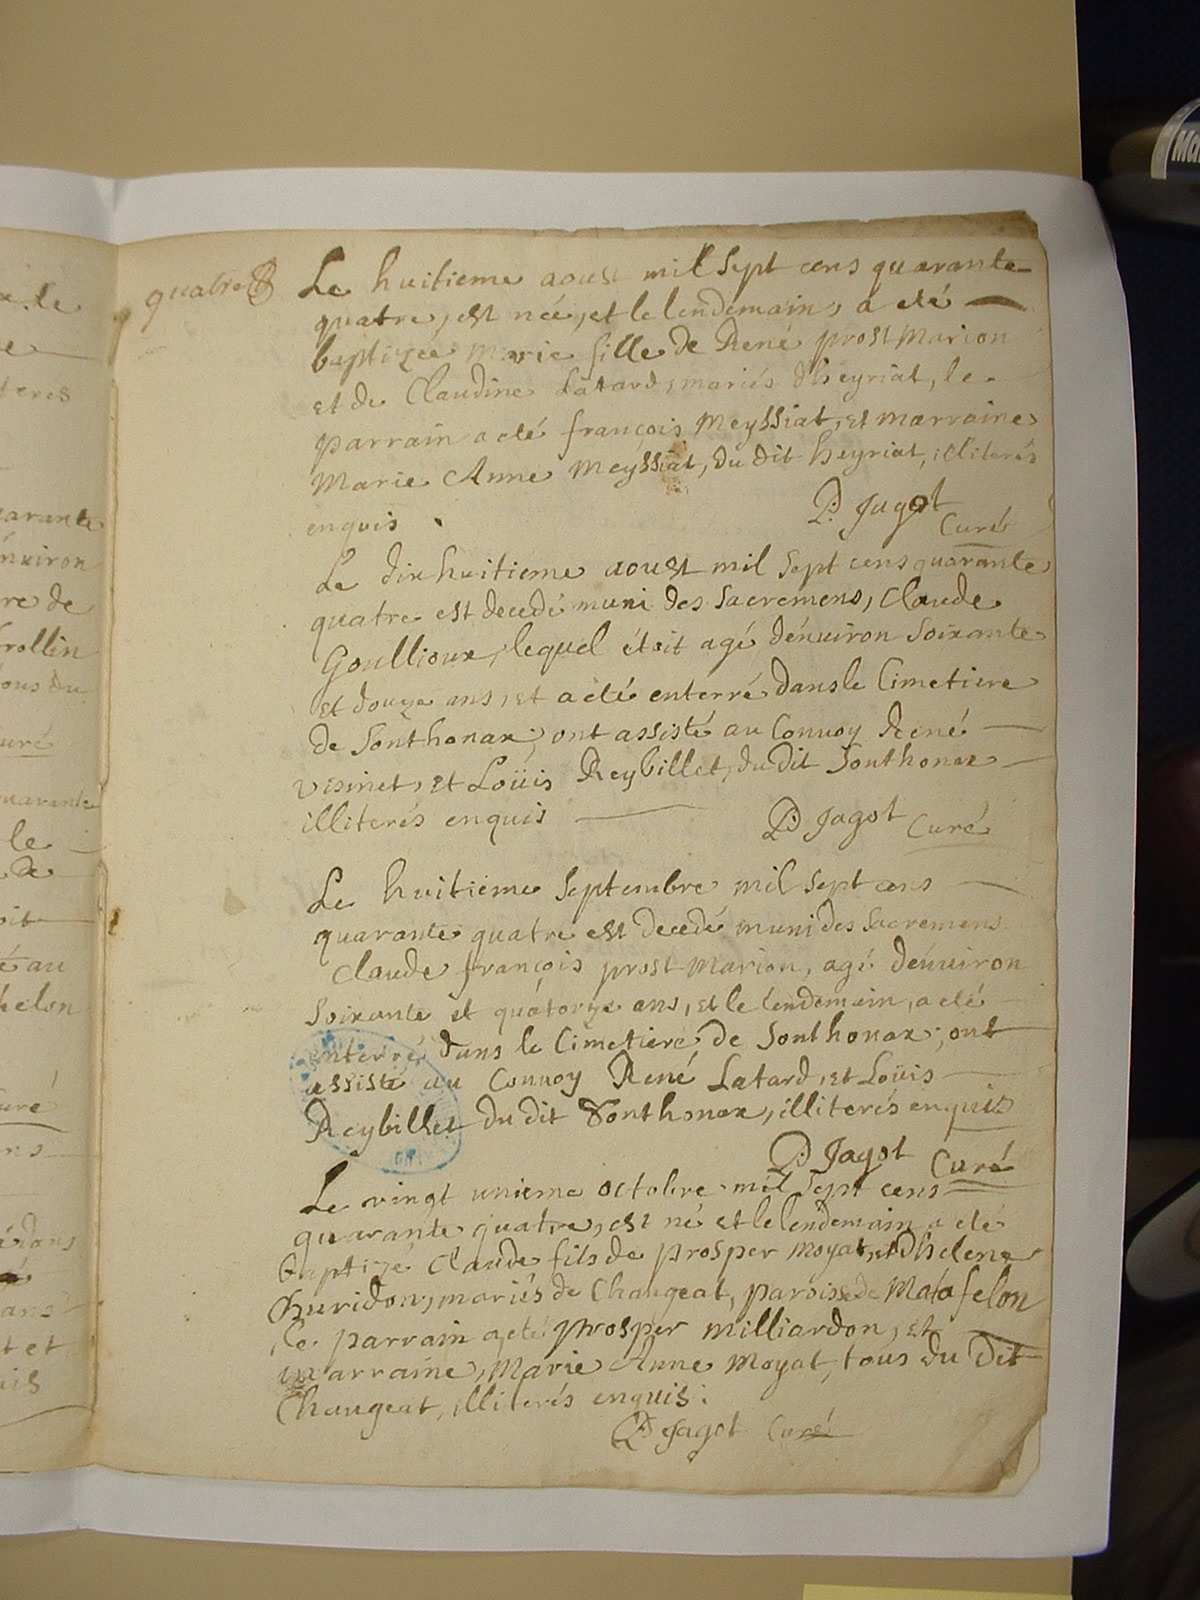 quatre
Le huitieme aoust mil sept cens quarante
quatre, est née, et le lendemain, a eté
baptizée Marie fille de René prost Marion
et de Claudine Latard, mariés d'heyriat, le
parrain a eté françois Meyssiat, et marraine
Marie Anne Meyssiat, du dit heyriat, illiterés
enquis.
P: Jagot Curé
Le dixhuitieme aoust mil sept cens quarante
quatre est decedé muni des sacremens, Claude
Goullioux, lequel étoit agé d'énuiron soixante
et douze ans, et a eté enterré dans le Cimetiere
de Sonthonax; ont assisté au Conuoy René
visinet, et Loüis Reybillet, du dit Sonthonax
illiterés enquis
P: Jagot Curé
Le huitieme septembre mil sept cens
quarante quatre est decedé muni des sacremens
Claude françois prost Marion, agé d'énuiron
soixante et quátorze ans, et le lendemain, a eté
enterré dans le Cimetiere de Sonthonax; ont
assisté au Conuoy René Latard, et Loüis
Reybillet du dit Sonthonax, illiterés enquis
P: Jagot Curé
Le vingt unieme octobre mil sept cens
quarante quatre, est né et le lendemain a eté
baptizé Claude fils de prosper Moyat, et d'helene
huridon, mariés de Changeat, paroisse de Matafelon
le parrain a eté prosper Milliardon, et
marraine, Marie Anne Moyat, tous du dit
Changeat, illiterés enquis:
P: Jagot Curé